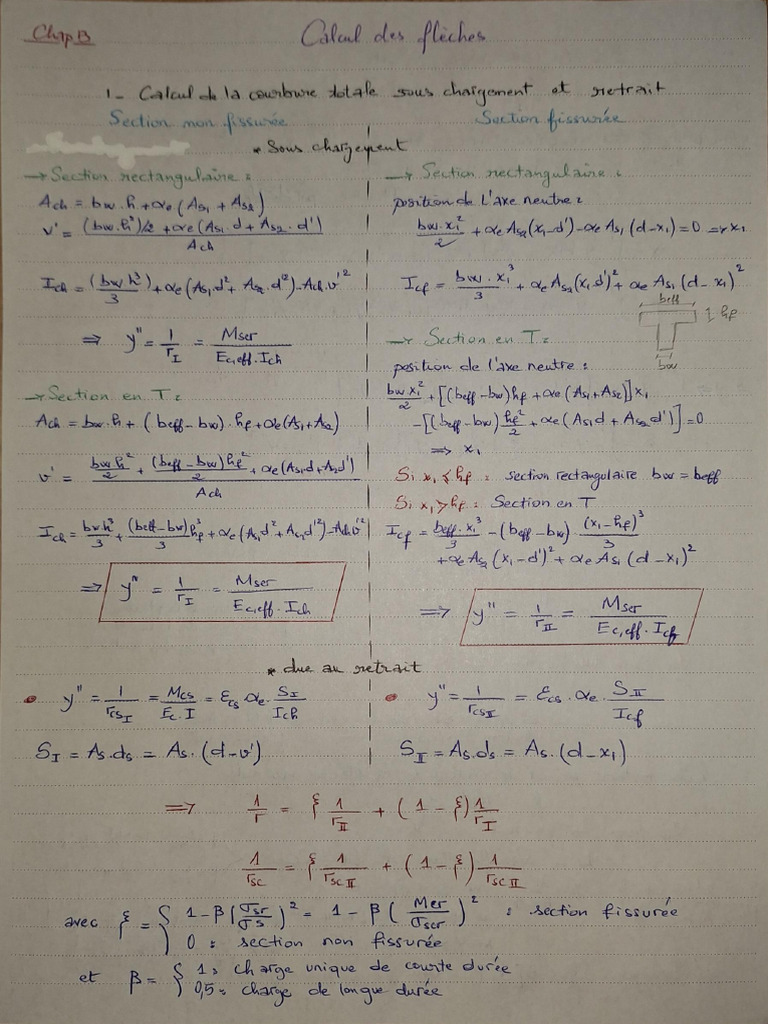 Chap 3
Calcul des flèches
1- Calcul de la courbure totale sous chargement et retrait
Section non fissurée
Section fissurée
* Sous chargement
→ Section rectangulaire :
Ach = bw.h + αe (As1 + As2)
v' = ((bw.h²)/2 + αe (As1.d + As2.d')) / Ach
Ich = (bw h³)/3 + αe (As1.d² + As2.d'²) - Ach.v'²
⇒ y'' = 1/rI = Mser / (Ec,eff . Ich)
→ Section en T :
Ach = bw.h + (beff - bw).hf + αe (As1 + As2)
v' = (bw h²/2 + (beff - bw) hf²/2 + αe (As1 d + As2 d')) / Ach
Ich = bw h³/3 + (beff - bw) hf³/3 + αe (As1 d² + As2 d'²) - Ach v'²
⇒ y'' = 1/rI = Mser / (Ec,eff . Ich)
→ Section rectangulaire :
position de l'axe neutre :
bw.x1²/2 + αe As2 (x1 - d') - αe As1 (d - x1) = 0 ⇒ x1
Icf = bw.x1³/3 + αe As2 (x1 d')² + αe As1 (d - x1)²
beff
hf
bw
→ Section en T :
position de l'axe neutre :
bw x1²/2 + [(beff - bw) hf + αe (As1 + As2)] x1
- [(beff - bw) hf²/2 + αe (As1 d + As2 d')] = 0
⇒ x1
Si x1 ≤ hf : section rectangulaire bw = beff
Si x1 > hf : Section en T
Icf = beff.x1³/3 - (beff - bw) . (x1 - hf)³/3
+ αe As2 (x1 - d')² + αe As1 (d - x1)²
⇒ y'' = 1/rII = Mser / (Ec,eff . Icf)
* due au retrait
• y'' = 1/rcsI = Mcs / (Ec.I) = εcs αe . SI / Ich
SI = As.ds = As.(d - v')
• y'' = 1/rcsII = εcs . αe . SII / Icf
SII = As.ds = As.(d - x1)
⇒ 1/r = ξ 1/rII + (1 - ξ) 1/rI
1/rsc = ξ 1/rscII + (1 - ξ) 1/rscII
avec ξ = { 1 - β (σsr/σs)² = 1 - β (Mer/σscr)² : section fissurée
0 : section non fissurée
et β = { 1 : charge unique de courte durée
0,5 : charge de longue durée